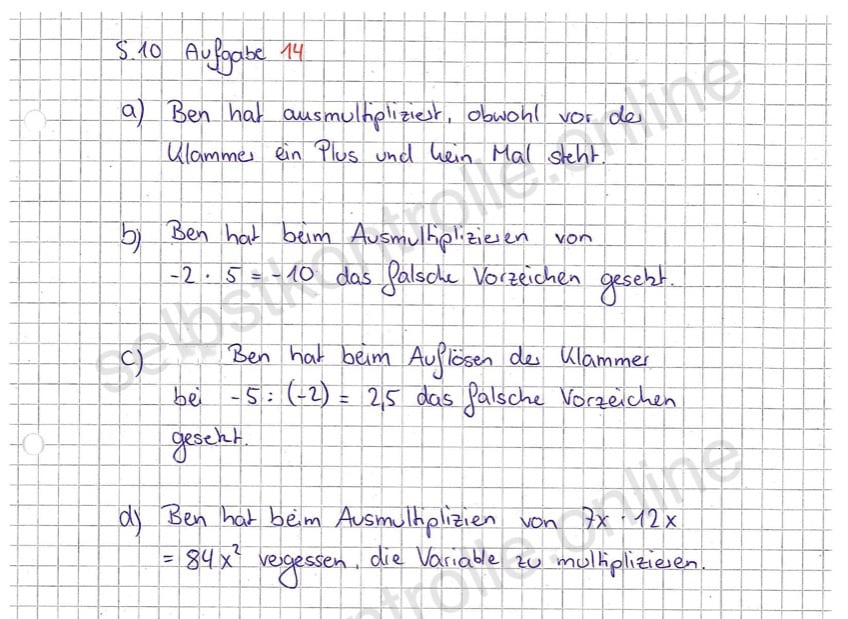 S.10 Aufgabe 14
a) Ben hat ausmultipliziert, obwohl vor der
Klammer ein Plus und kein Mal steht.
b) Ben hat beim Ausmultiplizieren von
-2 · 5 = -10 das falsche Vorzeichen gesetzt.
c) Ben hat beim Auflösen der Klammer
bei -5 : (-2) = 2,5 das falsche Vorzeichen
gesetzt.
d) Ben hat beim Ausmultiplizien von 7x · 12x
= 84x² vergessen, die Variable zu multiplizieren.
selbstkontrolle.online
selbstkontrolle.online